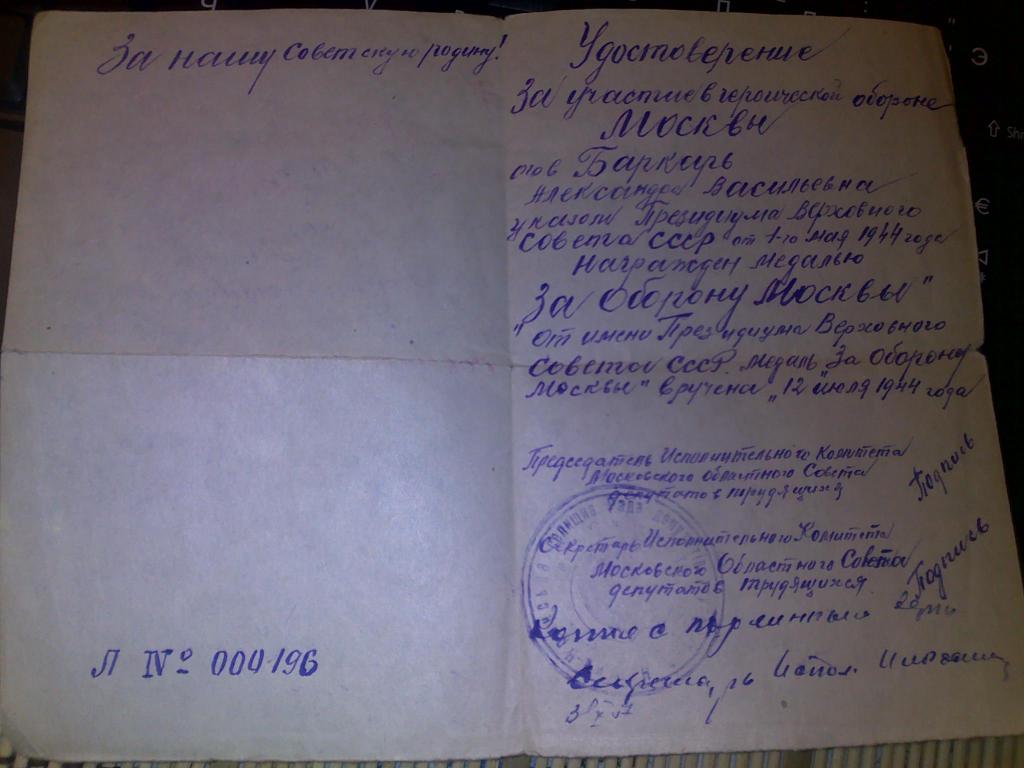 За нашу Советскую родину!
Л № 000196
Удостоверение
За участие в героической обороне
Москвы
тов Баркарь
Александра Васильевна
указом Президиума Верховного
Совета СССР от 1-го мая 1944 года
награжден медалью
За Оборону Москвы"
"от имени Президиума Верховного
Совета СССР медаль „За Оборону
Москвы" вручена „12 июля 1944 года
Председатель Исполнительного Комитета
Московского областного Совета
депутатов трудящихся
Подпись
Секретарь Исполнительного Комитета
Московского Областного Совета
депутатов трудящихся
Подпись
Секретарь